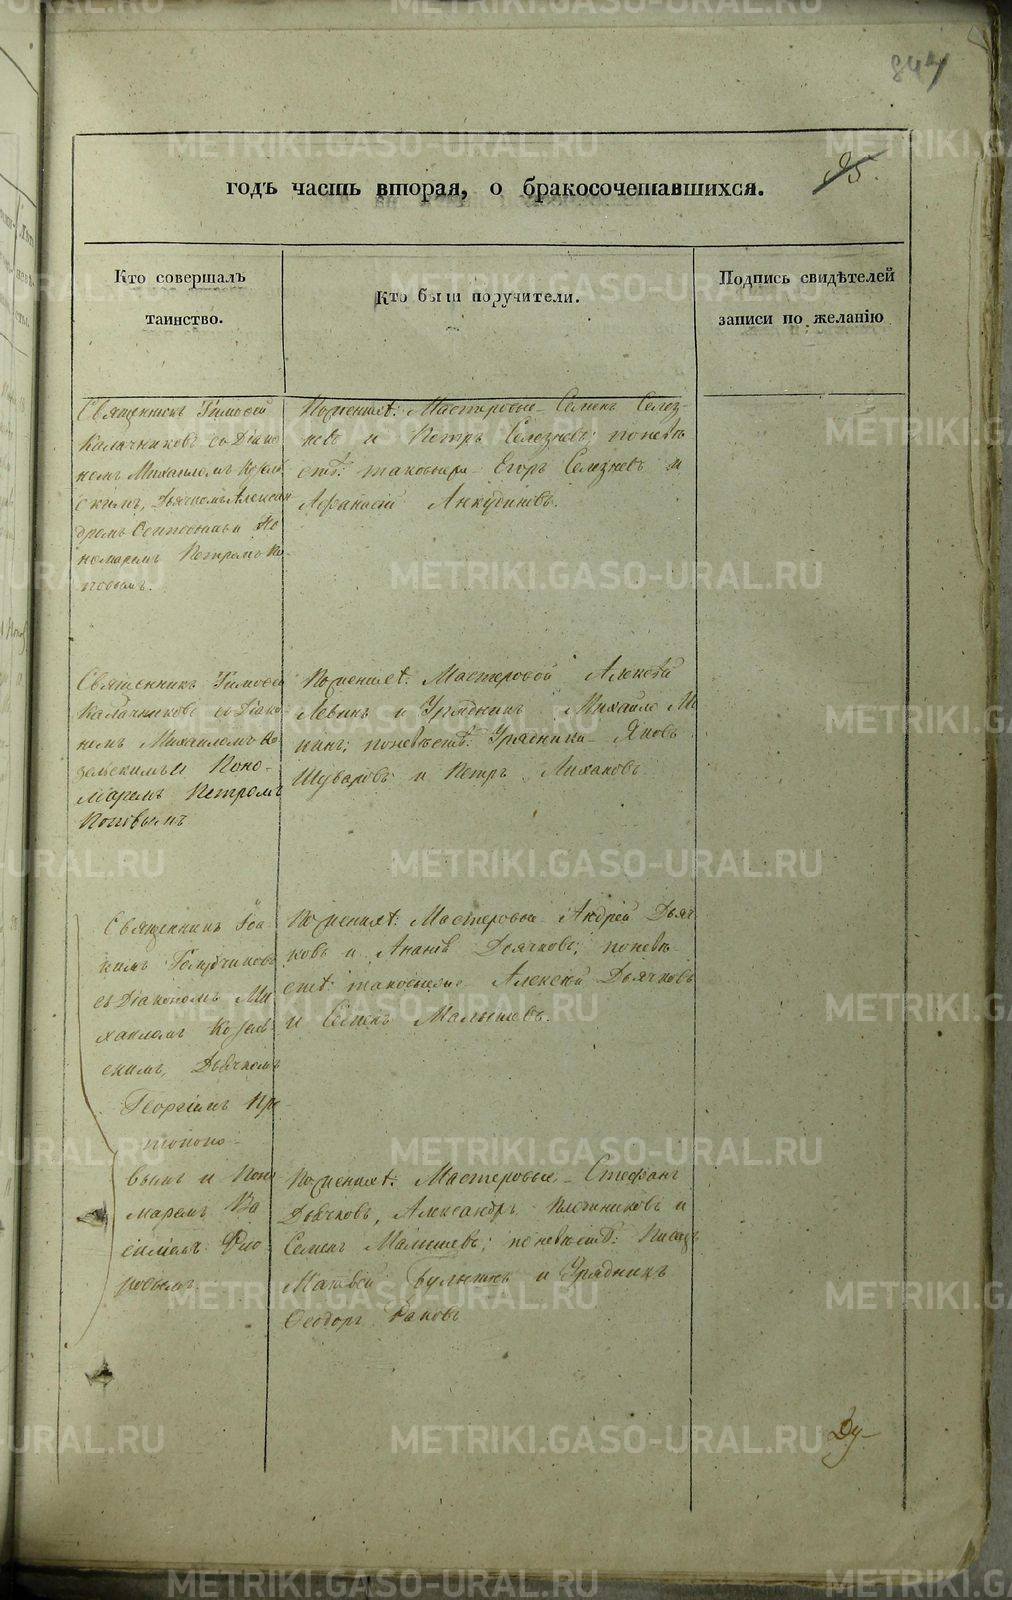 847
95.
годъ часть вторая, о бракосочетавшихся.
Кто совершалъ
таинство.
Кто были поручители.
Подпись свидѣтелей
записи по желанію
Священникъ Тимофей
Калачниковъ съ Діако
номъ Михаиломъ
скимъ, Дьячкомъ Алексан
дромъ и По
номаремъ Петромъ По
повымъ.
По женихѣ: Мастеровые Семенъ Селез-
невъ и Петръ Селезневъ; по невѣ
стѣ: таковыеже Егоръ Селезневъ и
Афанасій Анкудиновъ.
Священникъ Тимофей
Калачниковъ съ Діако
номъ Михаиломъ Ко
зельскимъ и Поно-
маремъ Петромъ
Поповымъ
По женихѣ: Мастеровой Алексѣй
и Урядникъ Михайло Ми
нинъ; по невѣстѣ: Урядники Яковъ
Шуваровъ и Петръ
Священникъ Іоа
кимъ
съ Діакономъ Ми
хаиломъ Козель
скимъ, Дьячкомъ
Георгіемъ Про
топопо-
вымъ и Поно
маремъ Ва
силіемъ Фло
ровымъ
По женихѣ: Мастеровые Андрей Дьяч
ковъ и Дьячковъ; по невѣ
стѣ: таковыеже Алексѣй Дьячковъ
и Семенъ Малышевъ.
По женихѣ: Мастеровые Стефанъ
Дьячковъ, Александръ и
Семенъ Малышевъ; по невѣстѣ: Писарь
Матвѣй и Урядникъ
Ѳеодоръ
Ду-
METRIKI.GASO-URAL.RU